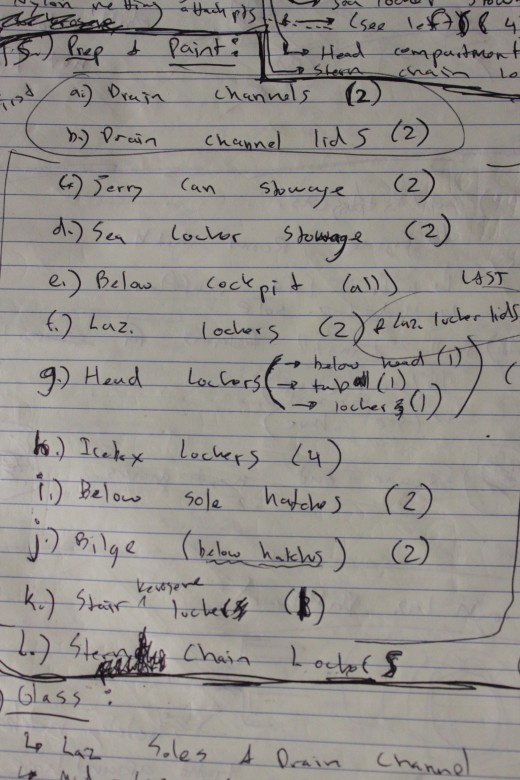 Nylon netting attach pts
(see left) 4
→ Head compartment
→ Stern chain lo
5.) Prep & Paint:
a.) Drain channels (2)
b.) Drain channel lids (2)
c.) Jerry Can stowage (2)
d.) Sea Locker stowage (2)
e.) Below cockpit (all) LAST
f.) Laz. lockers (2) & Laz. locker lids
g.) Head Lockers → below head (1)
→ tub (1)
→ locker (1)
h.) Icebox Lockers (4)
i.) Below sole hatches (2)
j.) Bilge (below hatchs) (2)
k.) Stair kerosene locker
l.) Stern Chain Locker
Glass:
↳ Laz Soles & Drain Channel